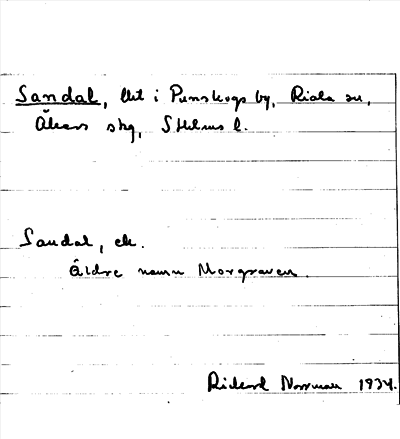 Sandal, lht i Punskogs by, Riala sn,
Åkers skg, Sthlms l.
Sandal, ch.
Äldre namn Morgraven.
Rickard Norrman 1934.